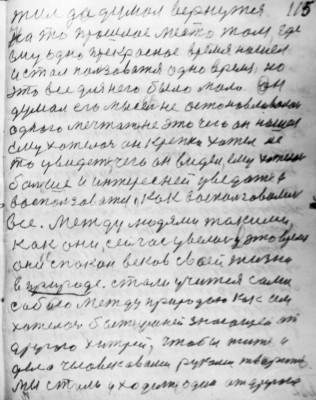 жил да думал вернутся. 115
на то прошлое место там, где
ему одно прекрасное время нашел
и стал ползоватя одно время, но
это все для него было мало. он
думал его мысел не останавливалас
одного мечтание это чего он нашел
ему хотелос он крепко хотел не
то увидет чего он видел, ему хотелос
болше и интересней уведат и
воспользоватя, как
все. Между людями такими,
как они, сейчас увелос в это время
они спокон веков своей жизни
в природе. стали учится сами
собою между природою как им
хотелос быт умней знающей от
другого хитрей, чтобы жит и
дела человековами руками творит
мы стал уходит одно от другого